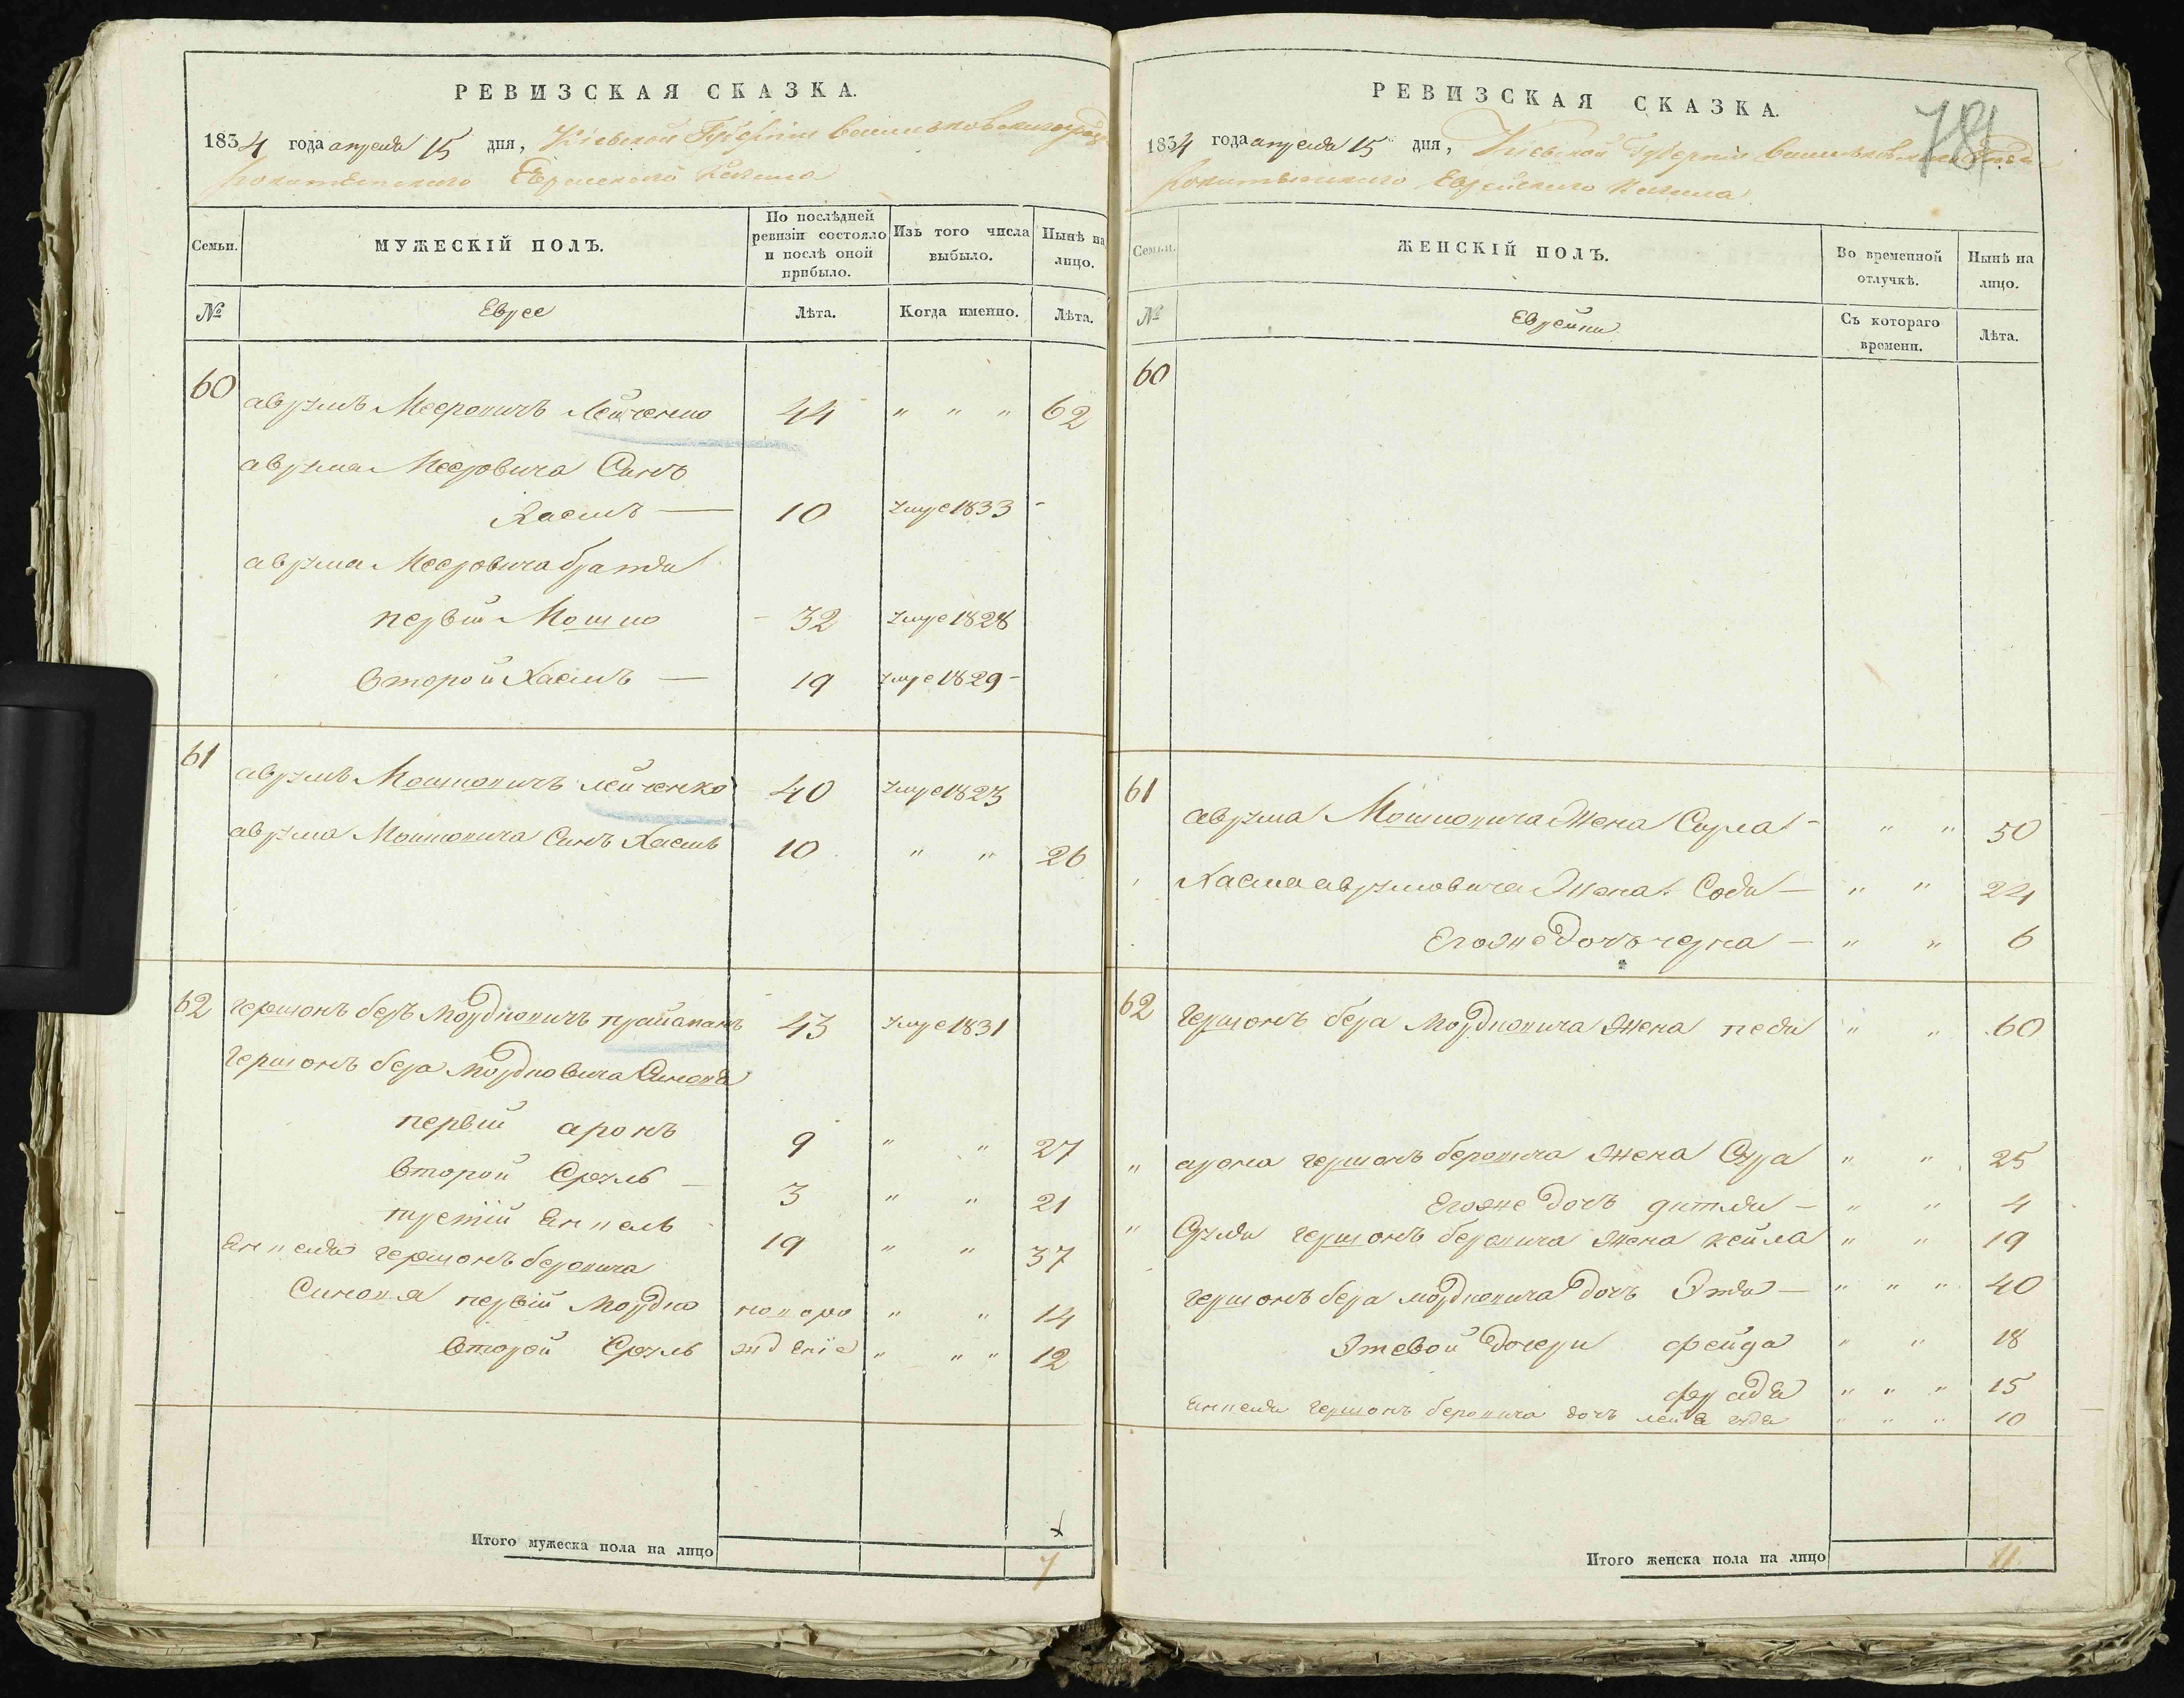 РЕВИЗСКАЯ СКАЗКА.
1834 года апреля 15 дня, Кіевской Губерніи Васильковского уезда
рокитянского Еврейского Кагала
Семьи.
МУЖЕСКІЙ ПОЛЪ.
По послѣдней ревизіи состояло и послѣ оной прибыло.
Изъ того числа выбыло.
Нынѣ на лицо.
№
Еврее
Лѣта.
Когда именно.
Лѣта.
60
аврумъ Мееровичъ Лейченко 44 " " " 62
аврума Мееровича Синъ
Хаемъ — 10 умре 1833 -
аврума Мееровича братья
первій Мошко - 32 умре 1828
второй Хаемъ — 19 умре 1829 -
61
аврумъ Мошковичъ лейченко 40 умре 1823
аврума Мошковича Синъ Хаемъ 10 " " 26
62 гершонъ беръ Мордковичъ 43 умре 1831
Гершонъ бера Мордковича Синовя
первій аронъ 9 " " 27
второй Сруль - 3 " " 21
третій Янкель 19 " " 37
Янкеля гершонъ беровича
Синовя первій Мордко новоро " " 14
второй Сруль жденіе " " " 12
Итого мужеска пола на лицо 7
РЕВИЗСКАЯ СКАЗКА.
78
1834 года апреля 15 дня, Кіевской Губерніи Васильковского уезда
рокитянского Еврейского Кагала
Семьи.
ЖЕНСКІЙ ПОЛЪ.
Во временной отлучкѣ.
Нынѣ на лицо.
№
Еврейки
Съ котораго времени.
Лѣта.
60
61
аврума Мошковича Жена Сурла - " " 50
Хаема аврумовича Жена Соля — " " 24
Егоже дочь черна — " " 6
62 Гершонъ бера Мордковича Жена песя " " 60
" арона гершонъ беровича жена Сура " " 25
Егоже дочь гитля — " " 4
" Сруля гершонъ беровича жена кейла " " 19
гершонъ бера мордковича дочь Этя — " " " 40
Этевой дочери фейга " " 18
фрадя " " " 15
Янкеля гершонъ беровича дочь " " " 10
Итого женска пола на лицо 11